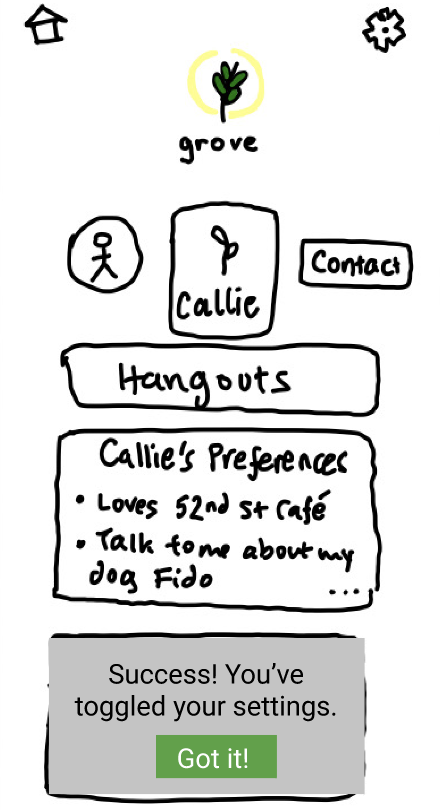 grove
Callie
Contact
Hangouts
Callie's Preferences
• Loves 52nd st Café
• Talk to me about my
dog Fido
...
Success! You've
toggled your settings.
Got it!